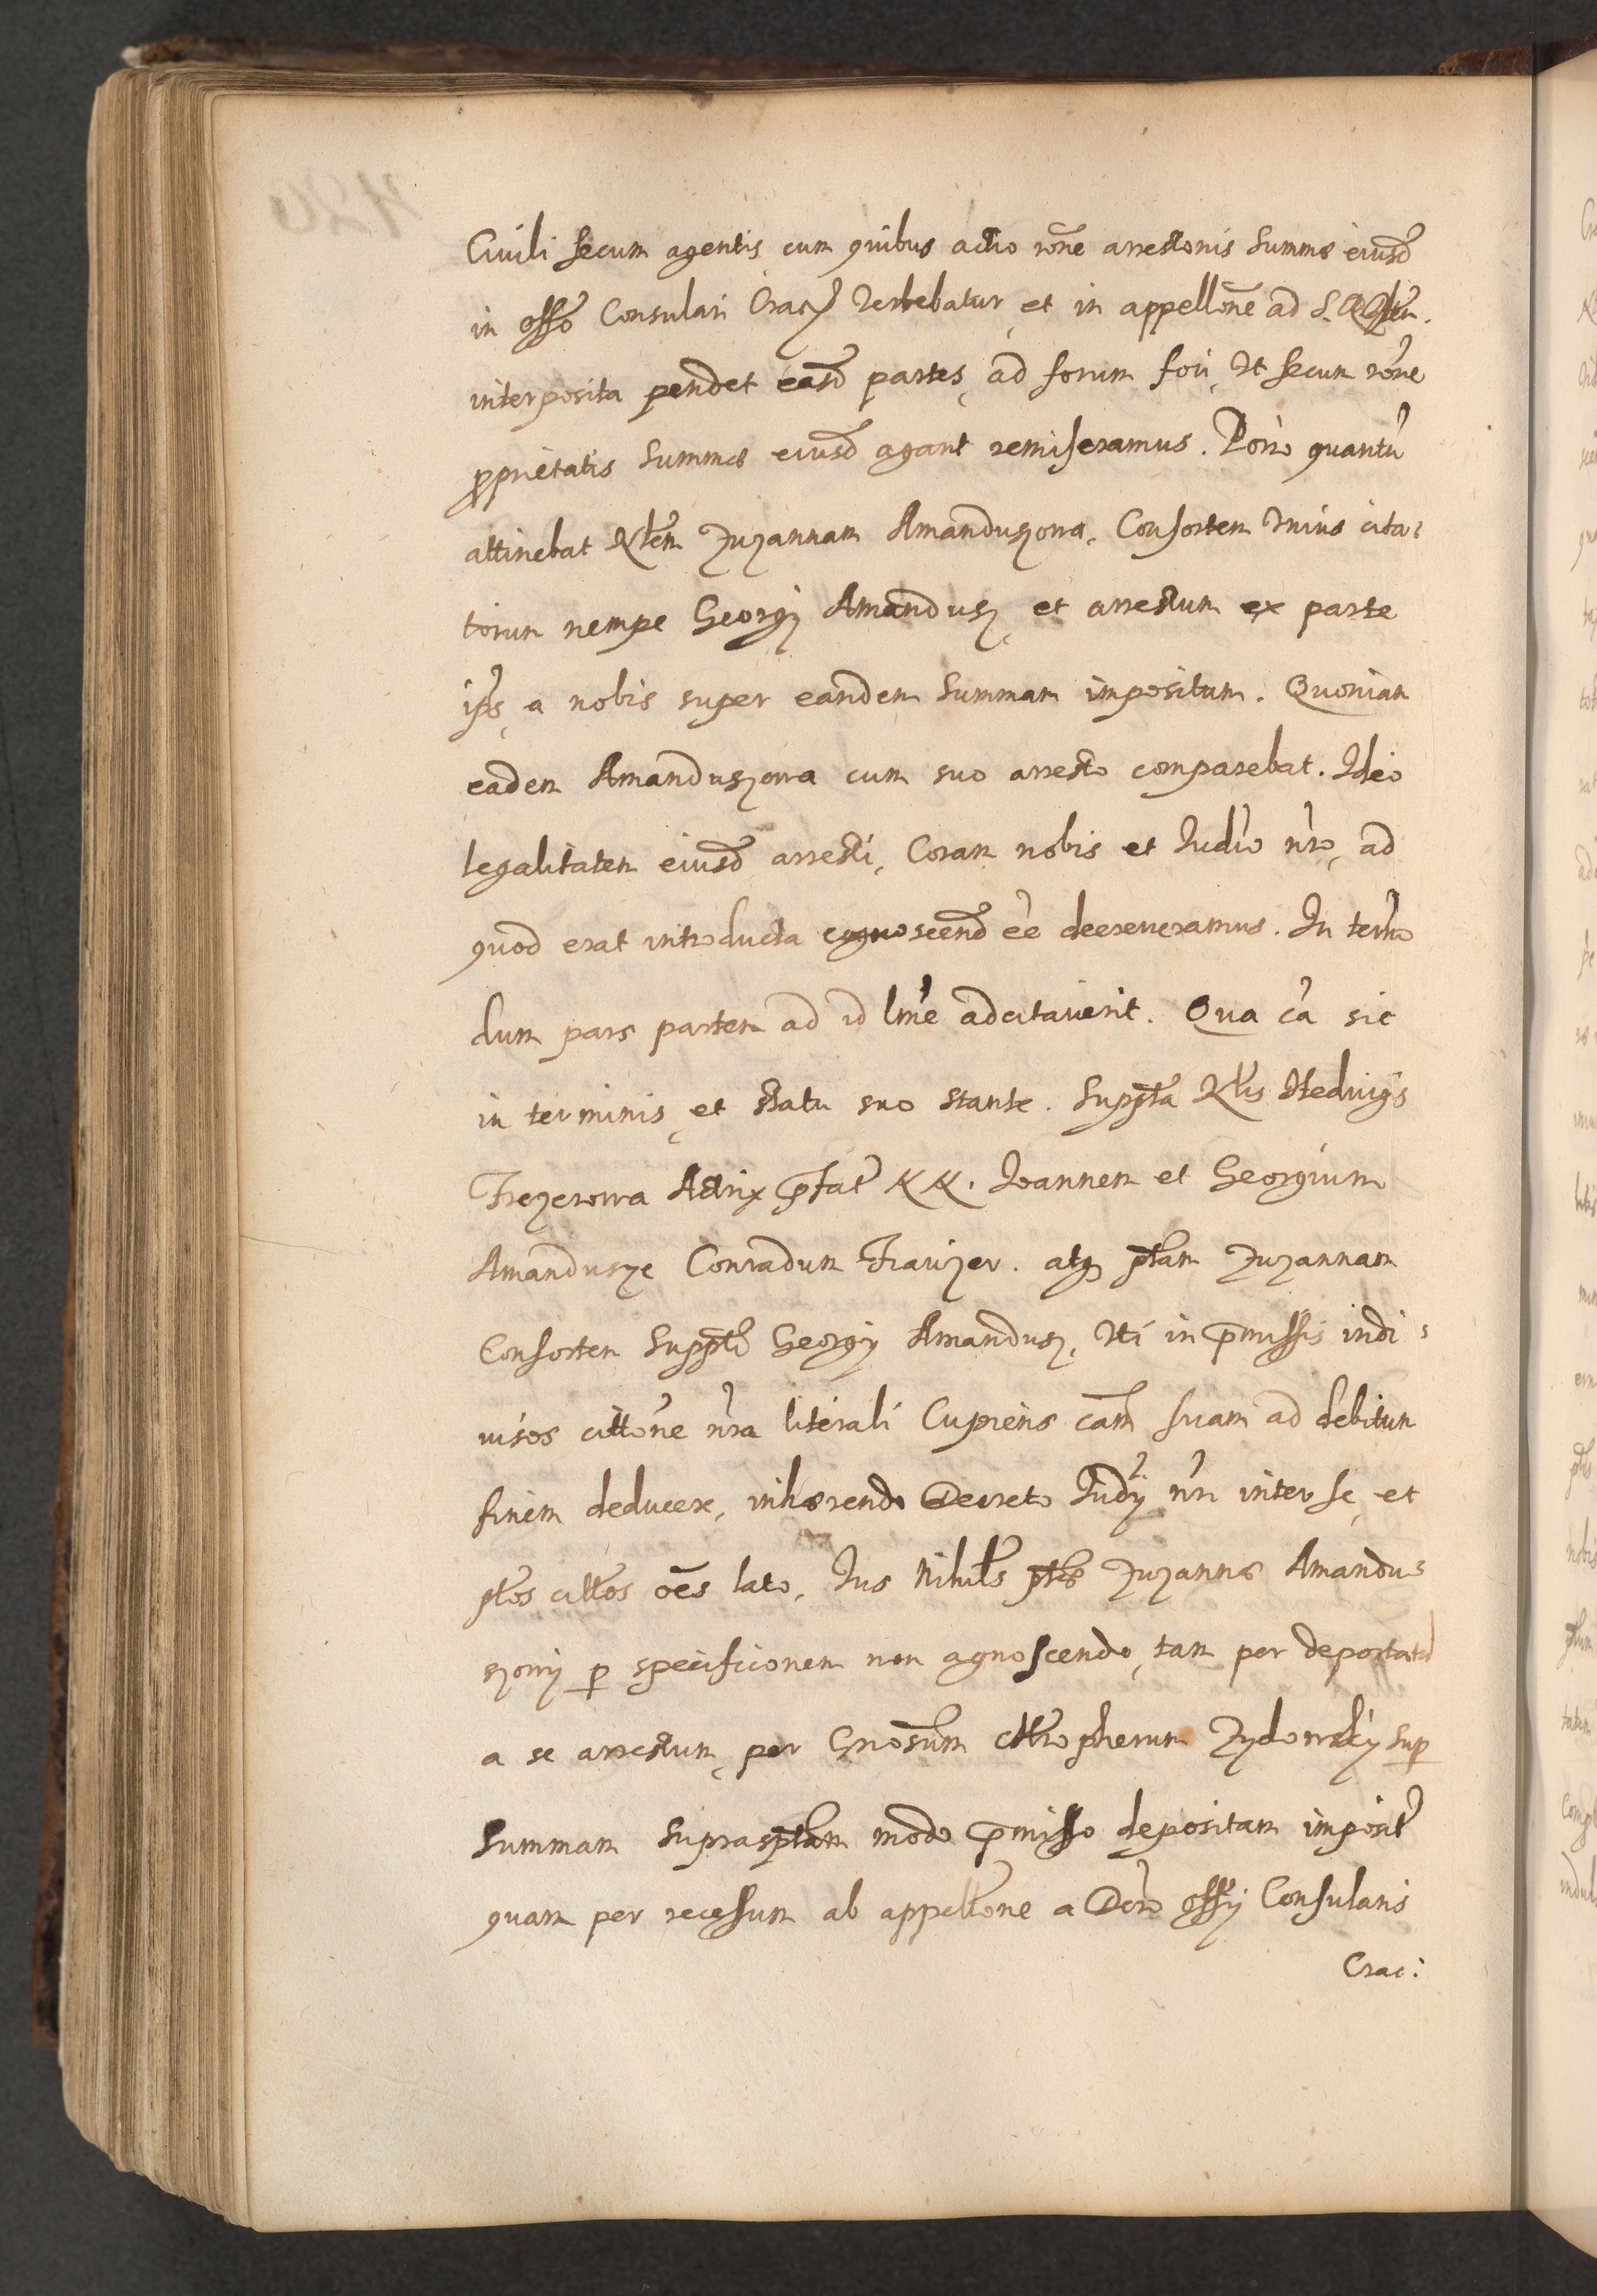 Ciuili secum agentis cum quibus actio rõne arrestonis Summæ eiusd̃
in offõ Consulari Crac̃ vertebatur et in appellõne ad S.
interposita pendet easd̃ partes, ad forum fori, Vt secum rõne
ꝓprietatis Summæ eiusd̃ agant remiseramus. Porro quantũ
attinebat Zuzannam Amanduszowa, Consortem Vnius cita-
torum nempe Georgij Amandusz, et arrestum ex parte
ipsˢ, a nobis super eandem Summam impositum. Quoniam
eadem Amanduszowa cum suo arresto comparebat. Ideo
legalitatem eiusd̃ arresti, Coram nobis et Iudio nr̃o, ad
quod erat introducta cognoscend̃ eẽ decreueramus. In terño
dum pars partem ad id lmẽ adcitauerit. Qua cã sic
in terminis, et statu suo stante. Suppt̃a Hedvigis
Frezerowa Actrix p̃fatˢ Ioannem et Georgium
Amandusze Conradum Frauzer. atq; pt̃am Zuzannam
Consortem Suppt̃i Georgij Amandusz, Vti in p̃missis indi-
uisos cittõne nr̃a literali Cupiens cãm suam ad debitum
finem deducere, inhærendo Decreto Iudỹ nr̃i inter se, et
pt̃os cittos oẽs lato, Ius Nihils̃ pt̃æ Zuzannæ Amandu-
szowy p̱ specificionem non agnoscendo, tam per deportatũ
a se arrestum, per Gnosũm Chr̃opherum Zydowsky sup̱
Summam supraspt̃am modo p̃misso depositam impositˢ
quam per recessum ab appellõne a Dcr̃o Offỹ Consularis
Crac: